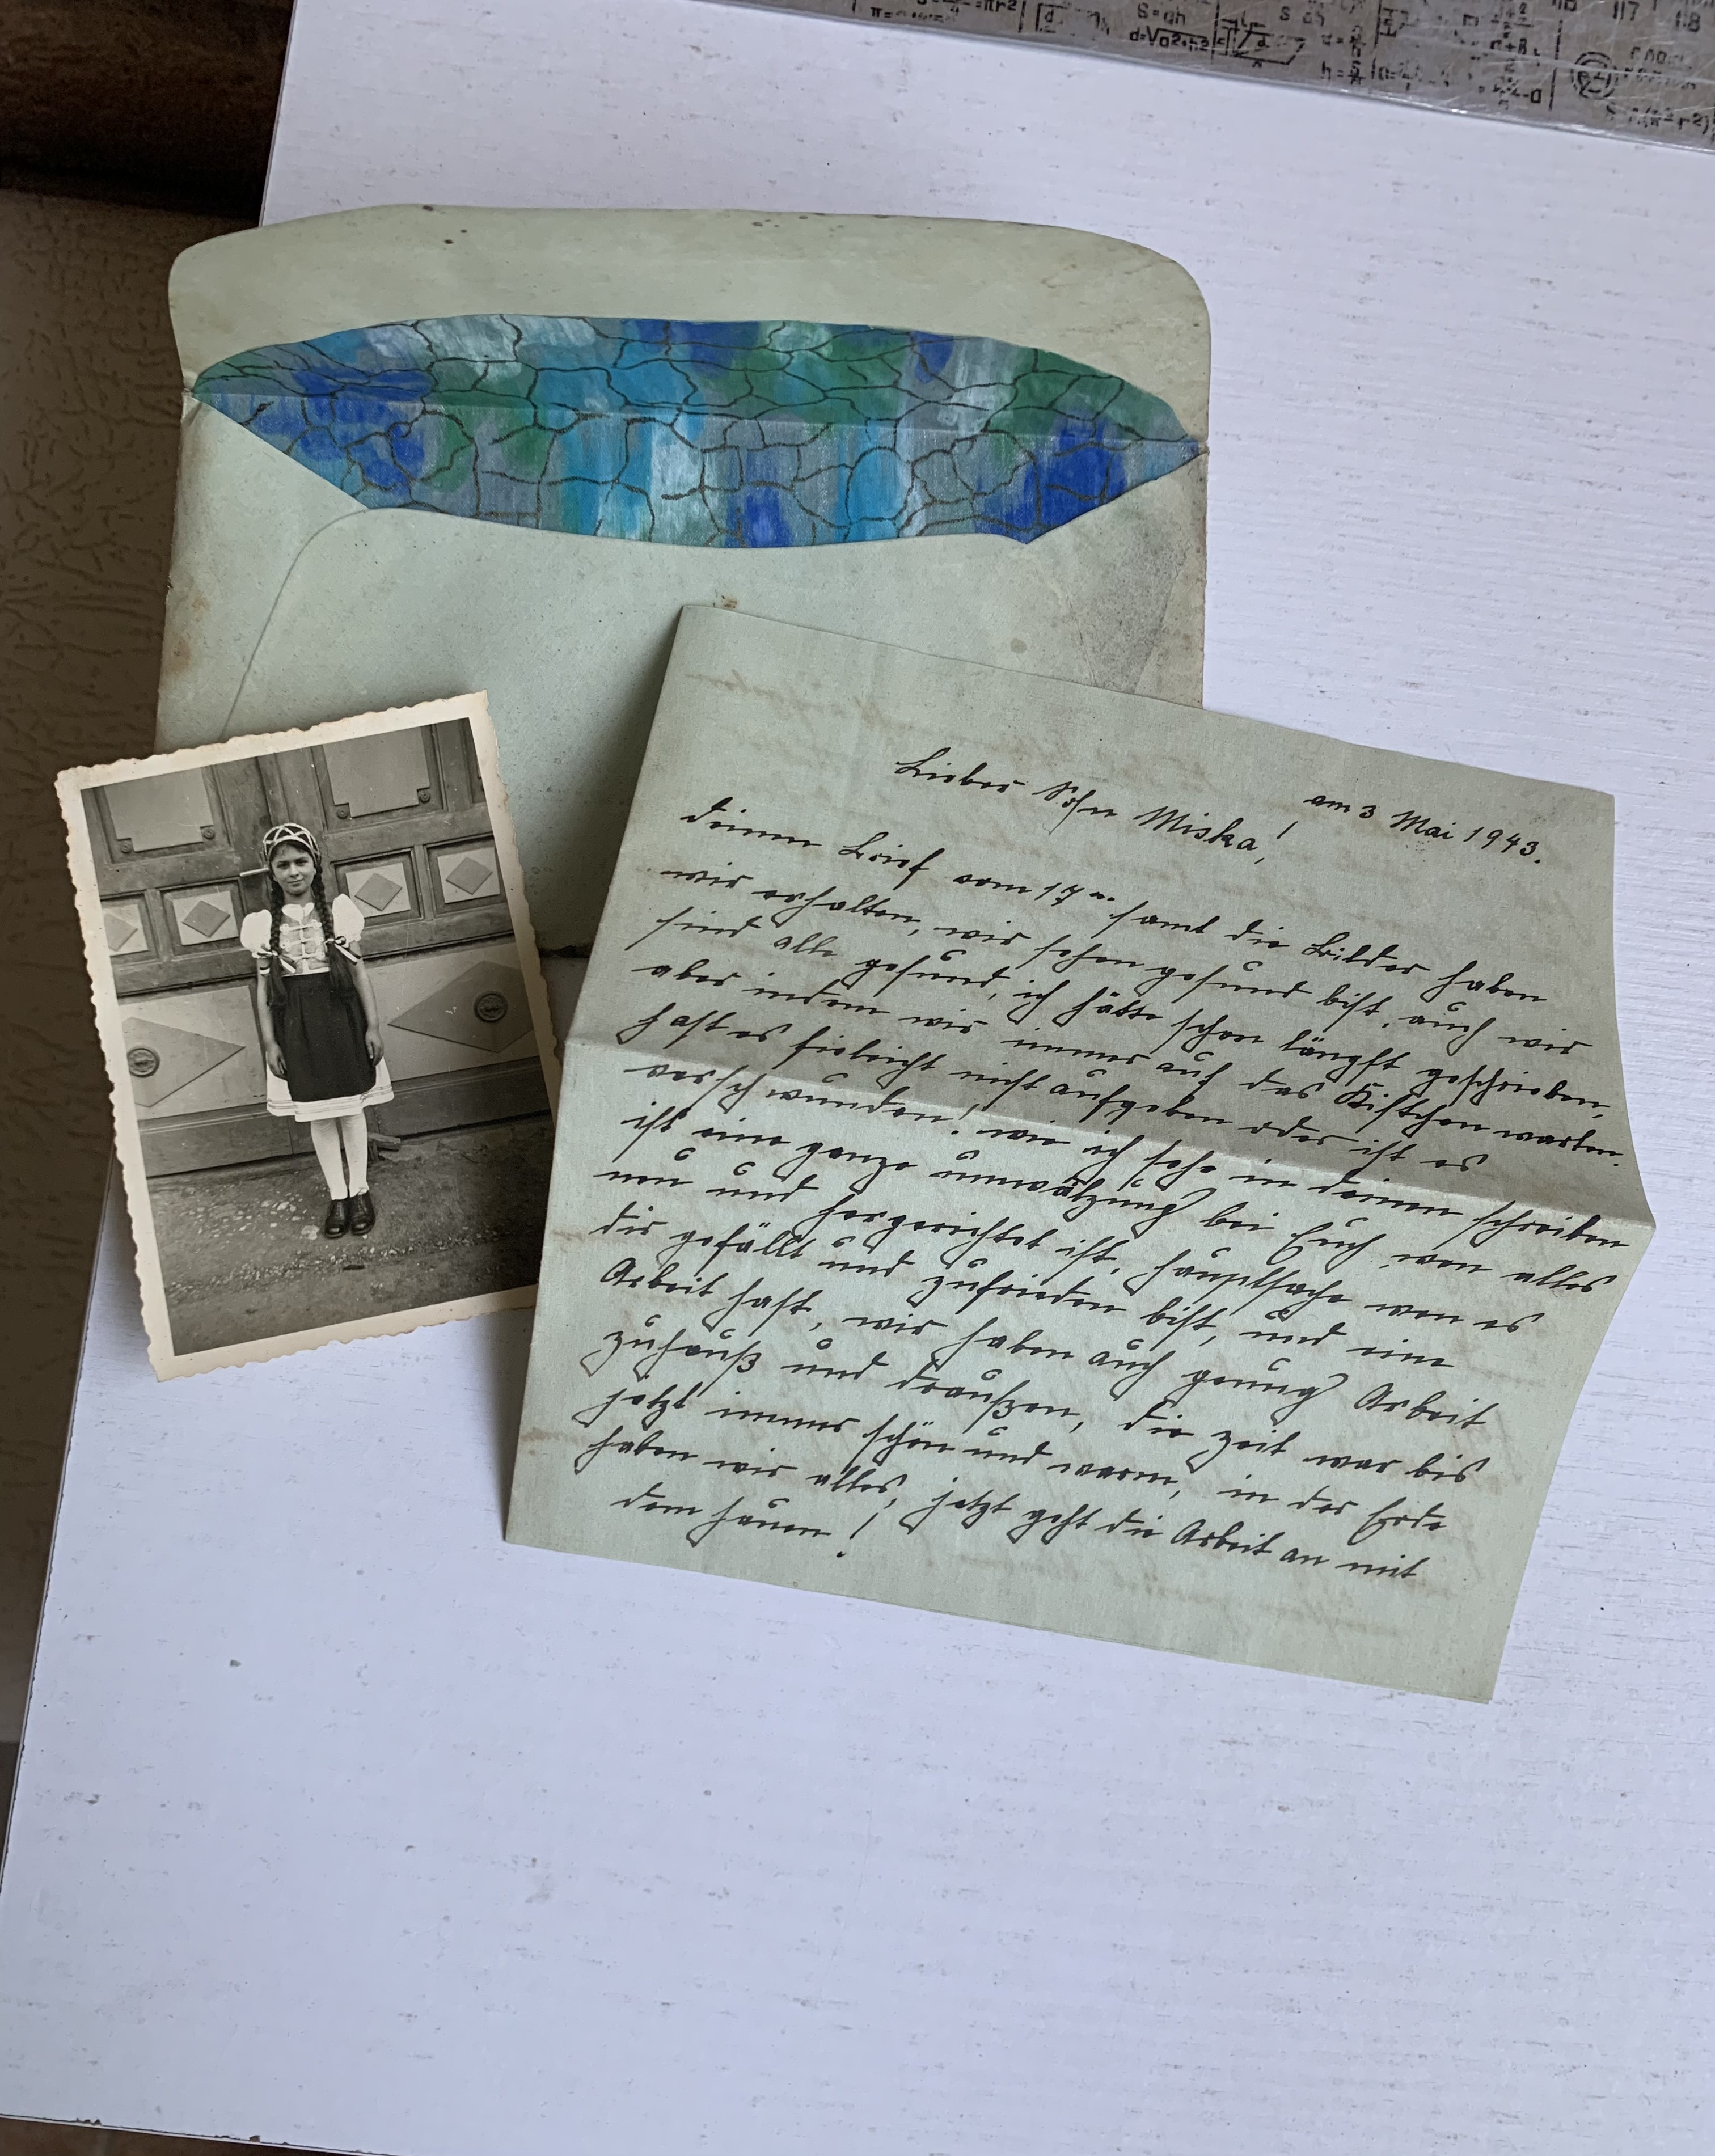 S=ah
d=√a²+h²
117 118
am 3 Mai 1943.
Lieber Sohn Miska!
deinen Brief vom 17ten samt die Bilder haben
wir erhalten, wir sehen gesund bist, auch wir
sind alle gesund, ich hätte schon längst geschrieben,
aber indem wir immer auf das Kistchen warten.
hast es vielleicht nicht aufgegeben oder ist es
verschwunden! wie ich sehe in deinem schreiben
ist eine ganze Umwälzung bei Euch, wen alles
neu und hergerichtet ist, hauptsache wen es
dir gefällt und zufrieden bist, und eine
Arbeit hast, wir haben auch genug Arbeit
zuhauß und draußen, die zeit war bis
jetzt immer schön und warm, in der Erde
haben wir alles, jetzt geht die Arbeit an mit
dem hauen!